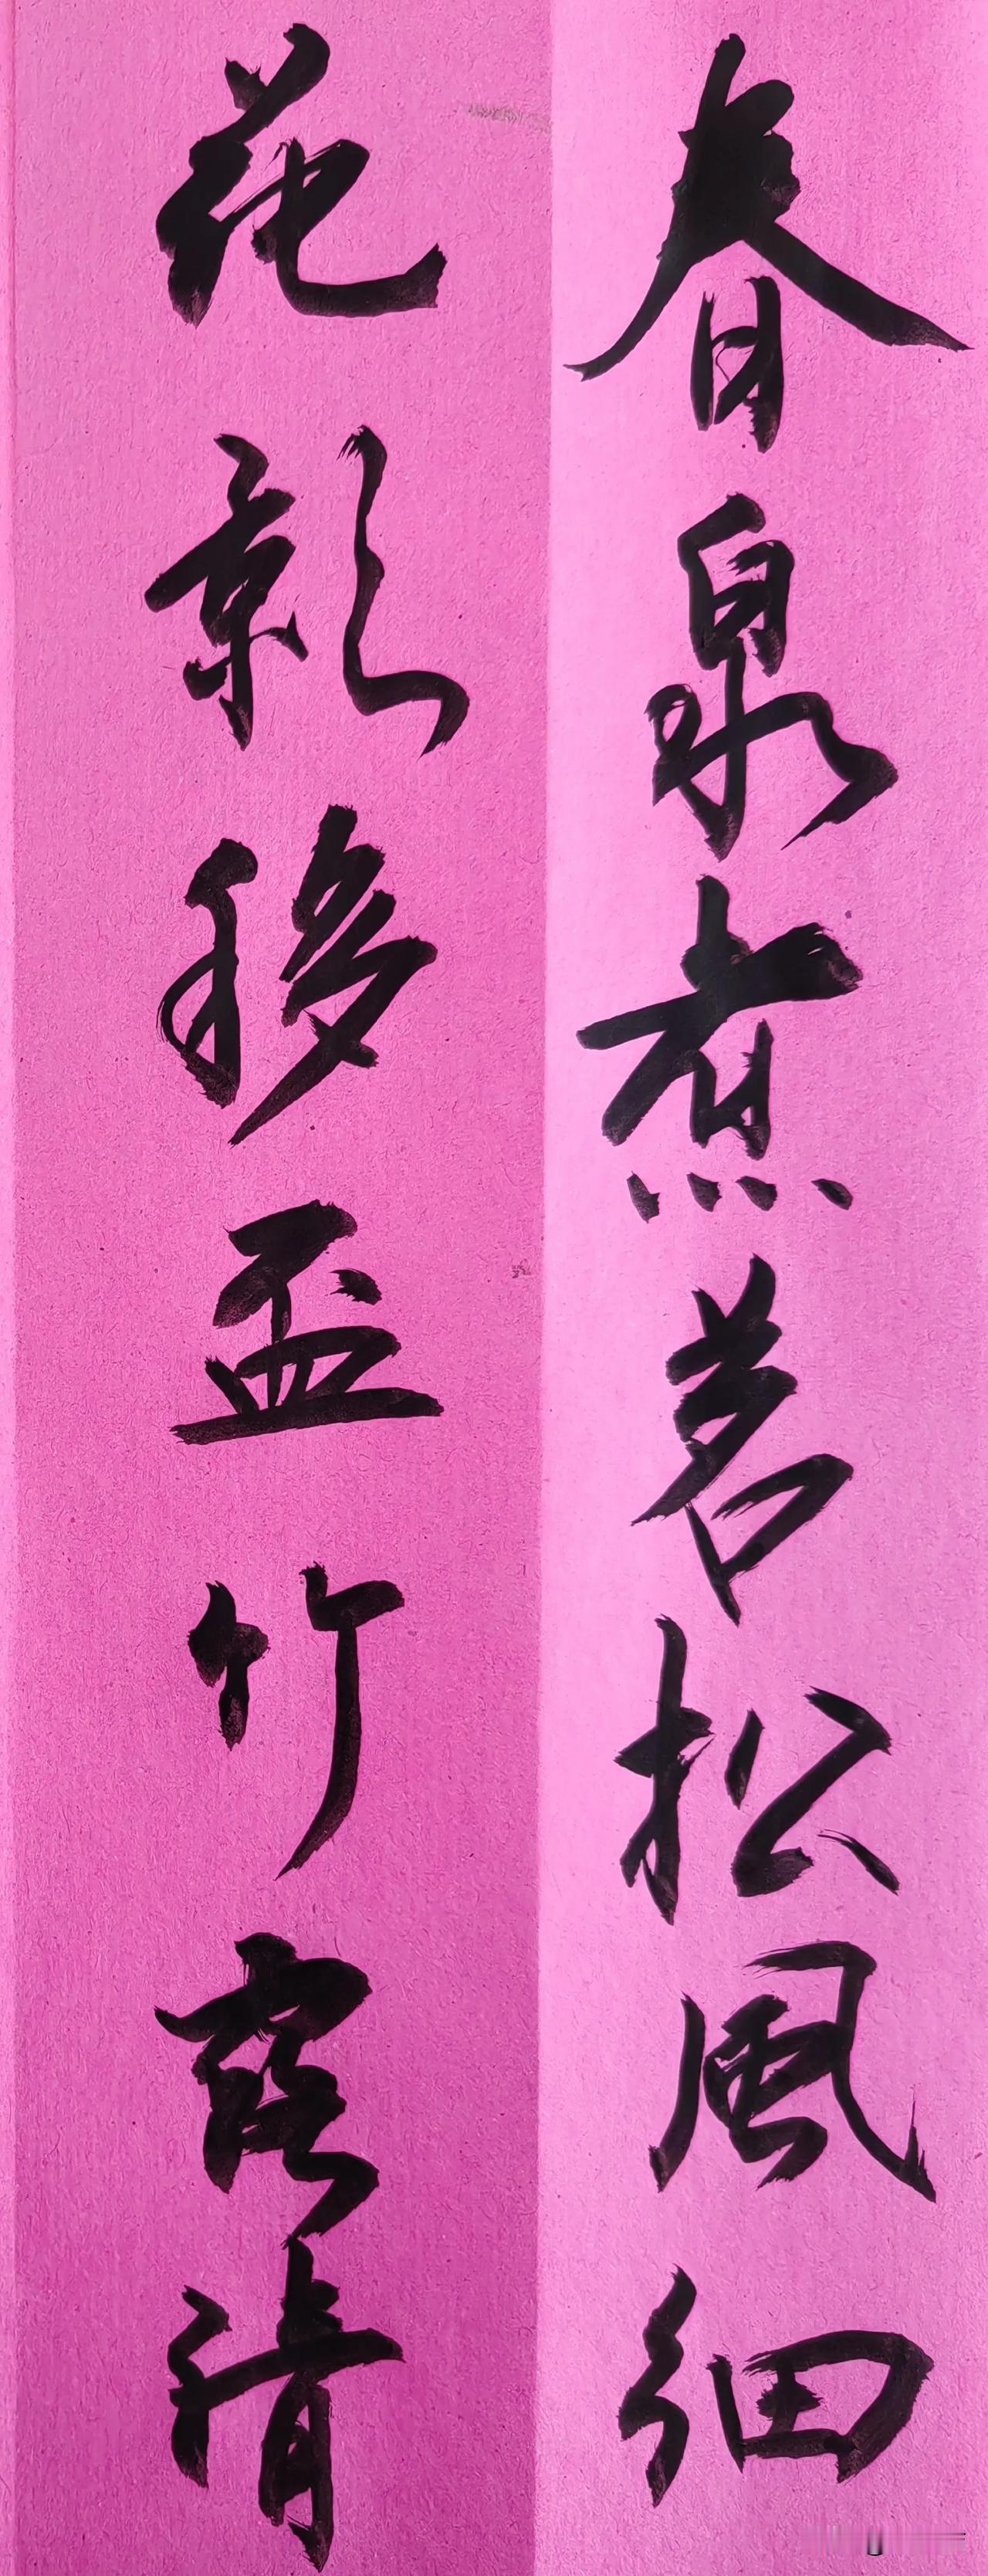 春泉煮茗松風細
花影移盃竹露清